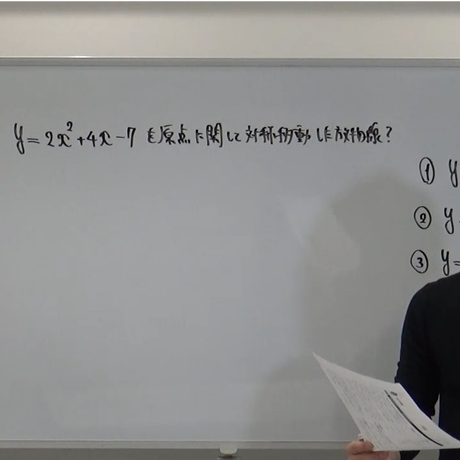 y=2x²+4x-7 を原点に関して対称移動した放物線?
① y
② y=
③ y=